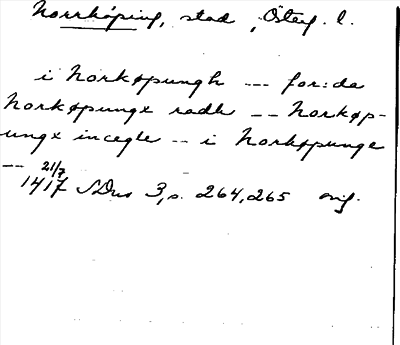 Norrköping, stad, Österg. l.
i Norkøpungh --- for:da
Norkøpungx radh -- Norkøp-
ungx incegle -- i Norkøpunge
-- 21/7
1417 SDns 3, s. 264, 265 orig.